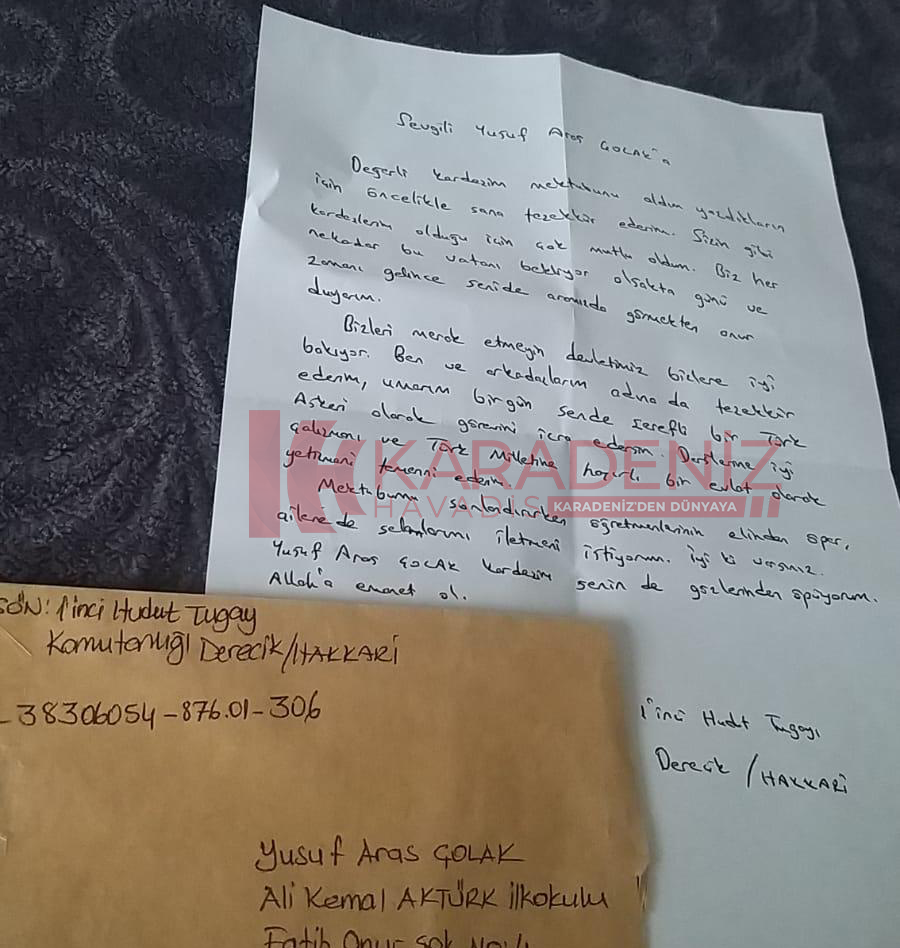 Sevgili Yusuf Aras ÇOLAK'a
Değerli kardeşim mektubunu aldım yazdıkların
için öncelikle sana teşekkür ederim. Sizin gibi
kardeşlerim olduğu için çok mutlu oldum. Biz her
nekadar bu vatanı bekliyor olsakta günü ve
zamanı gelince senide aramızda görmekten onur
duyarım.
Bizleri merak etmeyin devletimiz bizlere iyi
bakıyor. Ben ve arkadaşlarım adına da teşekkür
ederim, umarım birgün sende şerefli bir Türk
Askeri olarak görevini icra edersin. Derslerine iyi
çalışmanı ve Türk Milletine hayırlı bir evlat olarak
yetişmeni temenni ederim.
Mektubumu sonlandırırken öğretmenlerinin elinden öper,
ailene de selamlarımı iletmeni istiyorum. İyi ki varsınız.
Yusuf Aras ÇOLAK kardeşim senin de gözlerinden öpüyorum.
Allah'a emanet ol.
1'inci Hudut Tugayı
Derecik / HAKKARİ
KARADENİZ
HAVADİS
KARADENİZ'DEN DÜNYAYA
GÖN: 1'inci Hudut Tugay
Komutanlığı Derecik/HAKKARİ
-38306054-876.01-306
Yusuf Aras ÇOLAK
Ali Kemal AKTÜRK İlkokulu
Fatih Onur Sok